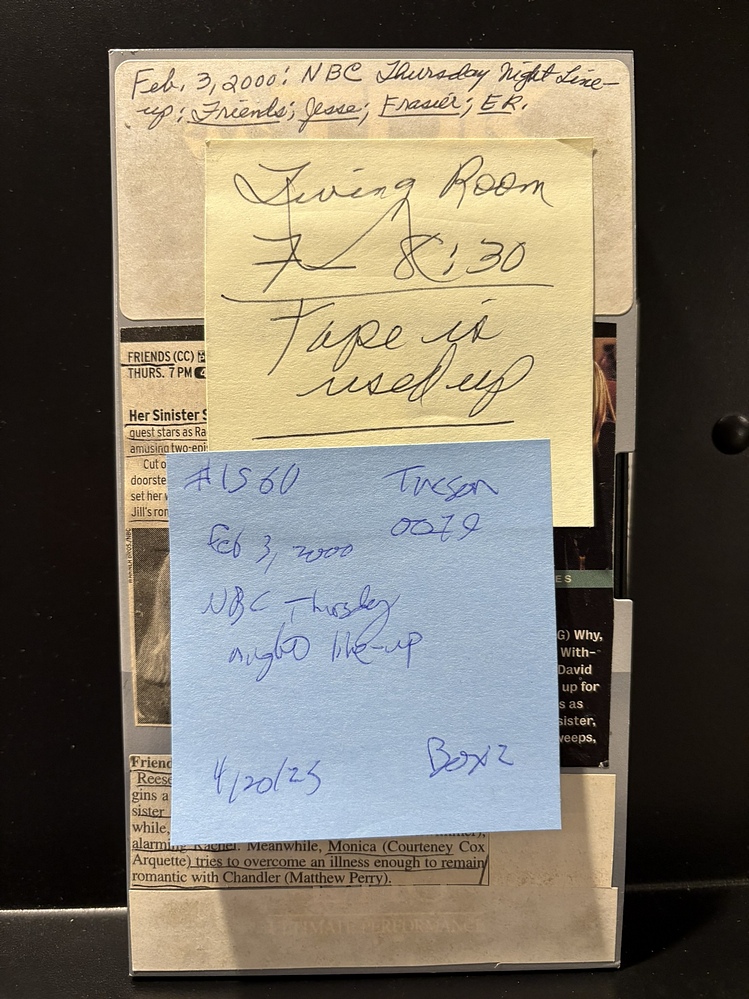 Feb. 3, 2000: NBC Thursday Night Line-
up: Friends; Jesse; Frasier; ER.
Living Room
7— 8:30
Tape is
used up
FRIENDS (CC)
THURS. 7 PM
Her Sinister S
guest stars as Ra
amusing two-epi
Cut o
doorste
set her w
Jill's rom
WARNER BROS./NBC
#1560 Tucson
Feb 3, 2000
NBC Thursday
night line-up
4/20/25 Box 2
ES
G) Why,
With-
David
up for
s as
sister,
weeps,
Friend
Reese
gins a
sister
while,
alarming Rachel. Meanwhile, Monica (Courteney Cox
Arquette) tries to overcome an illness enough to remain
romantic with Chandler (Matthew Perry).
ULTIMATE PERFORMANCE